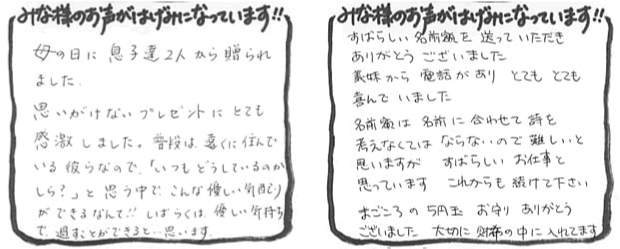 みな様のお声がはげみになっています!!
母の日に 息子達2人から贈られ
ました.
思いがけないプレゼントに とても
感激しました。普段は 遠くに住んで
いる 彼らなので、「いつも どうしているのか
しら?」と 思う中で、こんな優しい気配り
ができるなんて!! しばらくは、優しい気持ち
で、過すことができると…思います.
みな様のお声がはげみになっています!!
すばらしい 名前額を 送っていただき
ありがとう ございました
義妹から 電話があり とても とても
喜んで いました
名前額は 名前に 合わせて 詩を
考えなくては ならないので 難しいと
思いますが すばらしい お仕事と
思っています これからも 続けて下さい
まごころの 5円玉 お守り ありがとう
ございました 大切に 財布の中に 入れてます